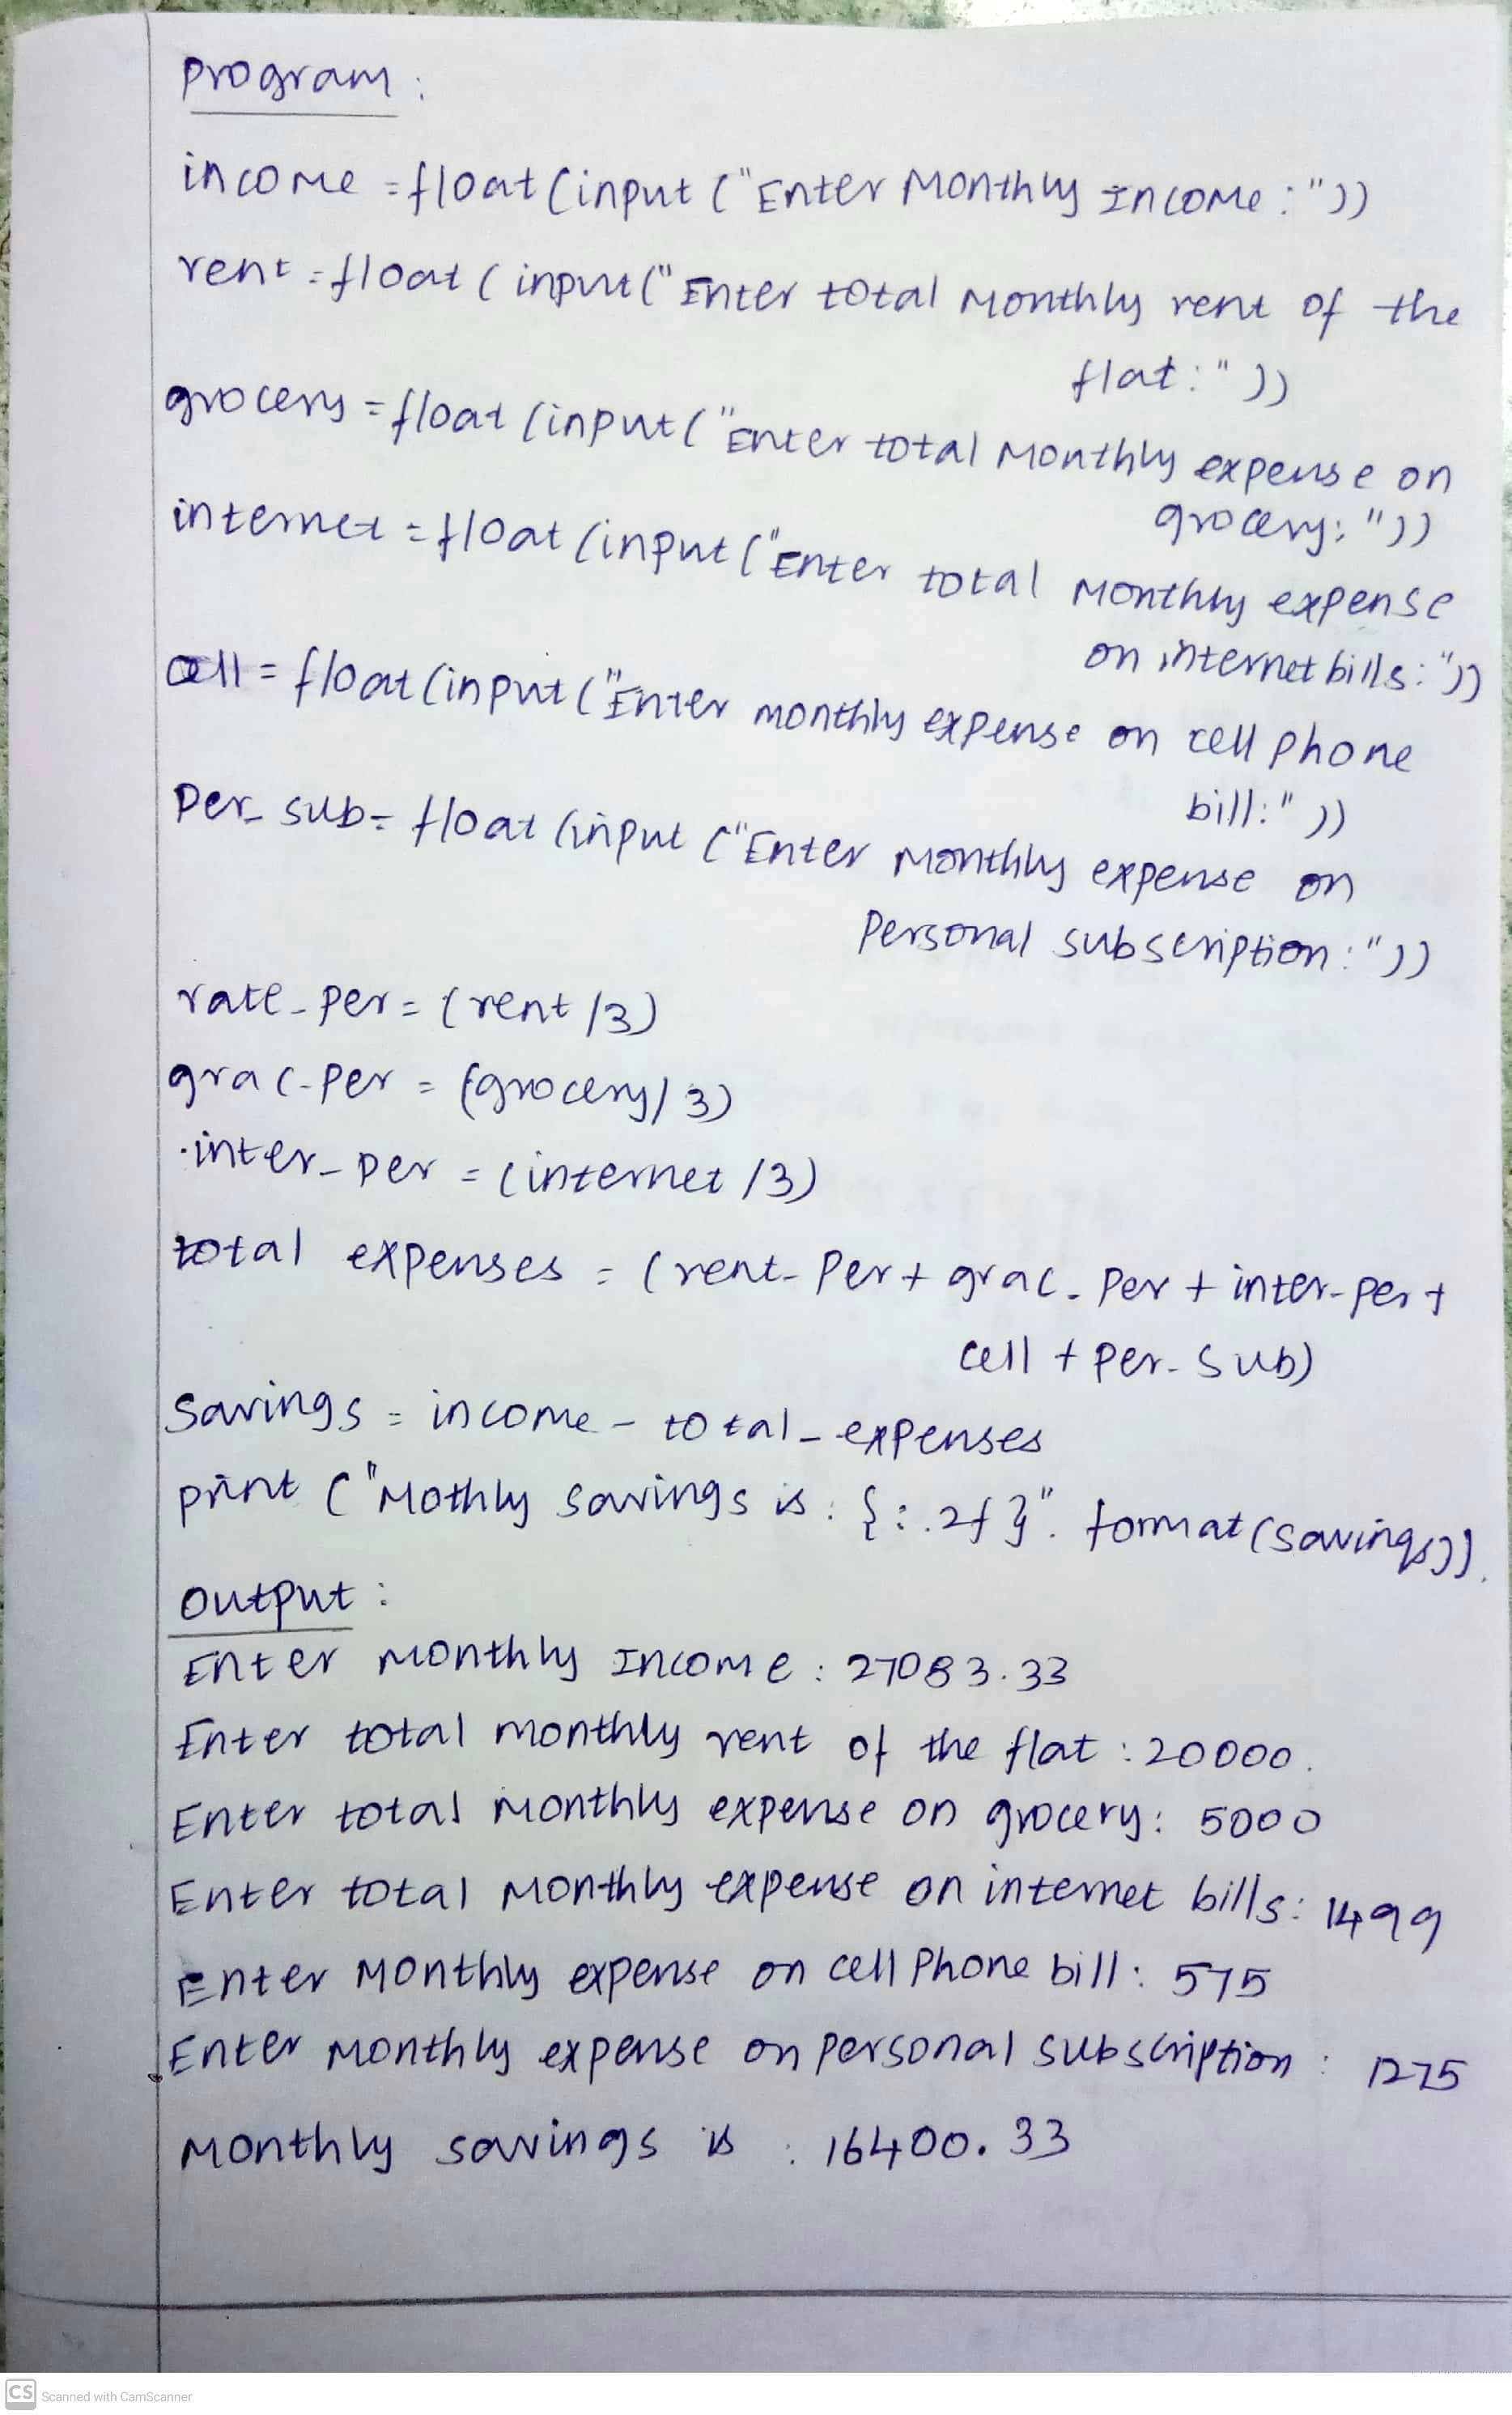 program :
income = float (input ("Enter Monthly Income : "))
rent = float ( input(" Enter total Monthly rent of the
flat : " ))
grocery = float (input( "Enter total Monthly expense on
grocery: "))
internet = float (input ("Enter total Monthly expense
on internet bills : "))
cell = float (input ("Enter monthly expense on cell phone
bill: " ))
Per_ sub = float (input ("Enter Monthly expense on
Personal subscription : "))
rate_per = (rent /3)
grac_per = (grocery/ 3)
inter_ per = (internet /3)
total expenses = (rent_ Per + grac_ Per + inter_per +
cell + per_ Sub)
Savings = income - total_ expenses
print ("Mothly savings is : {:.2f}". format (savings)).
Output :
Enter Monthly Income : 27083.33
Enter total monthly rent of the flat : 20000.
Enter total Monthly expense on grocery: 5000
Enter total Monthly expense on internet bills: 1499
Enter Monthly expense on cell Phone bill : 575
Enter Monthly expense on personal subscription : 1275
Monthly savings is : 16400.33
CS Scanned with CamScanner